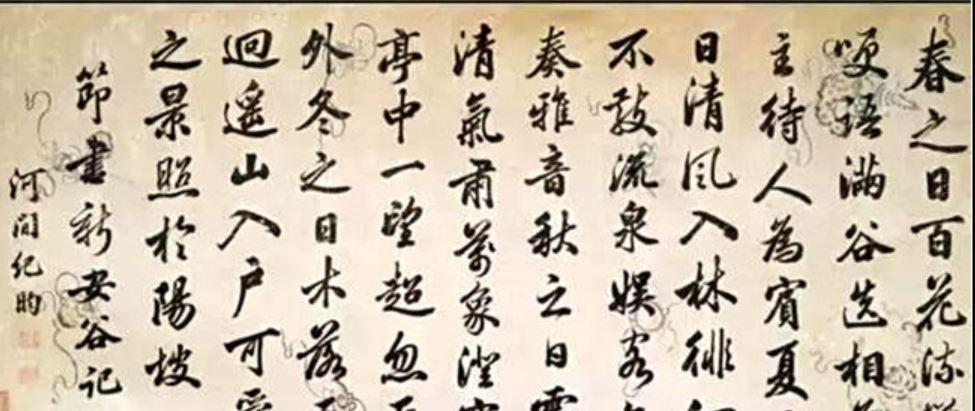 春之日百花流
哽語滿谷迭相
主待人為賓夏
日清風入林徘徊
不鼓流泉娛客
奏雅音秋之日露
清氣肅萬象澄
亭中一望超忽
外冬之日木落
迴遥山入户可
之景照於陽坡
節書新安谷記
河間紀昀